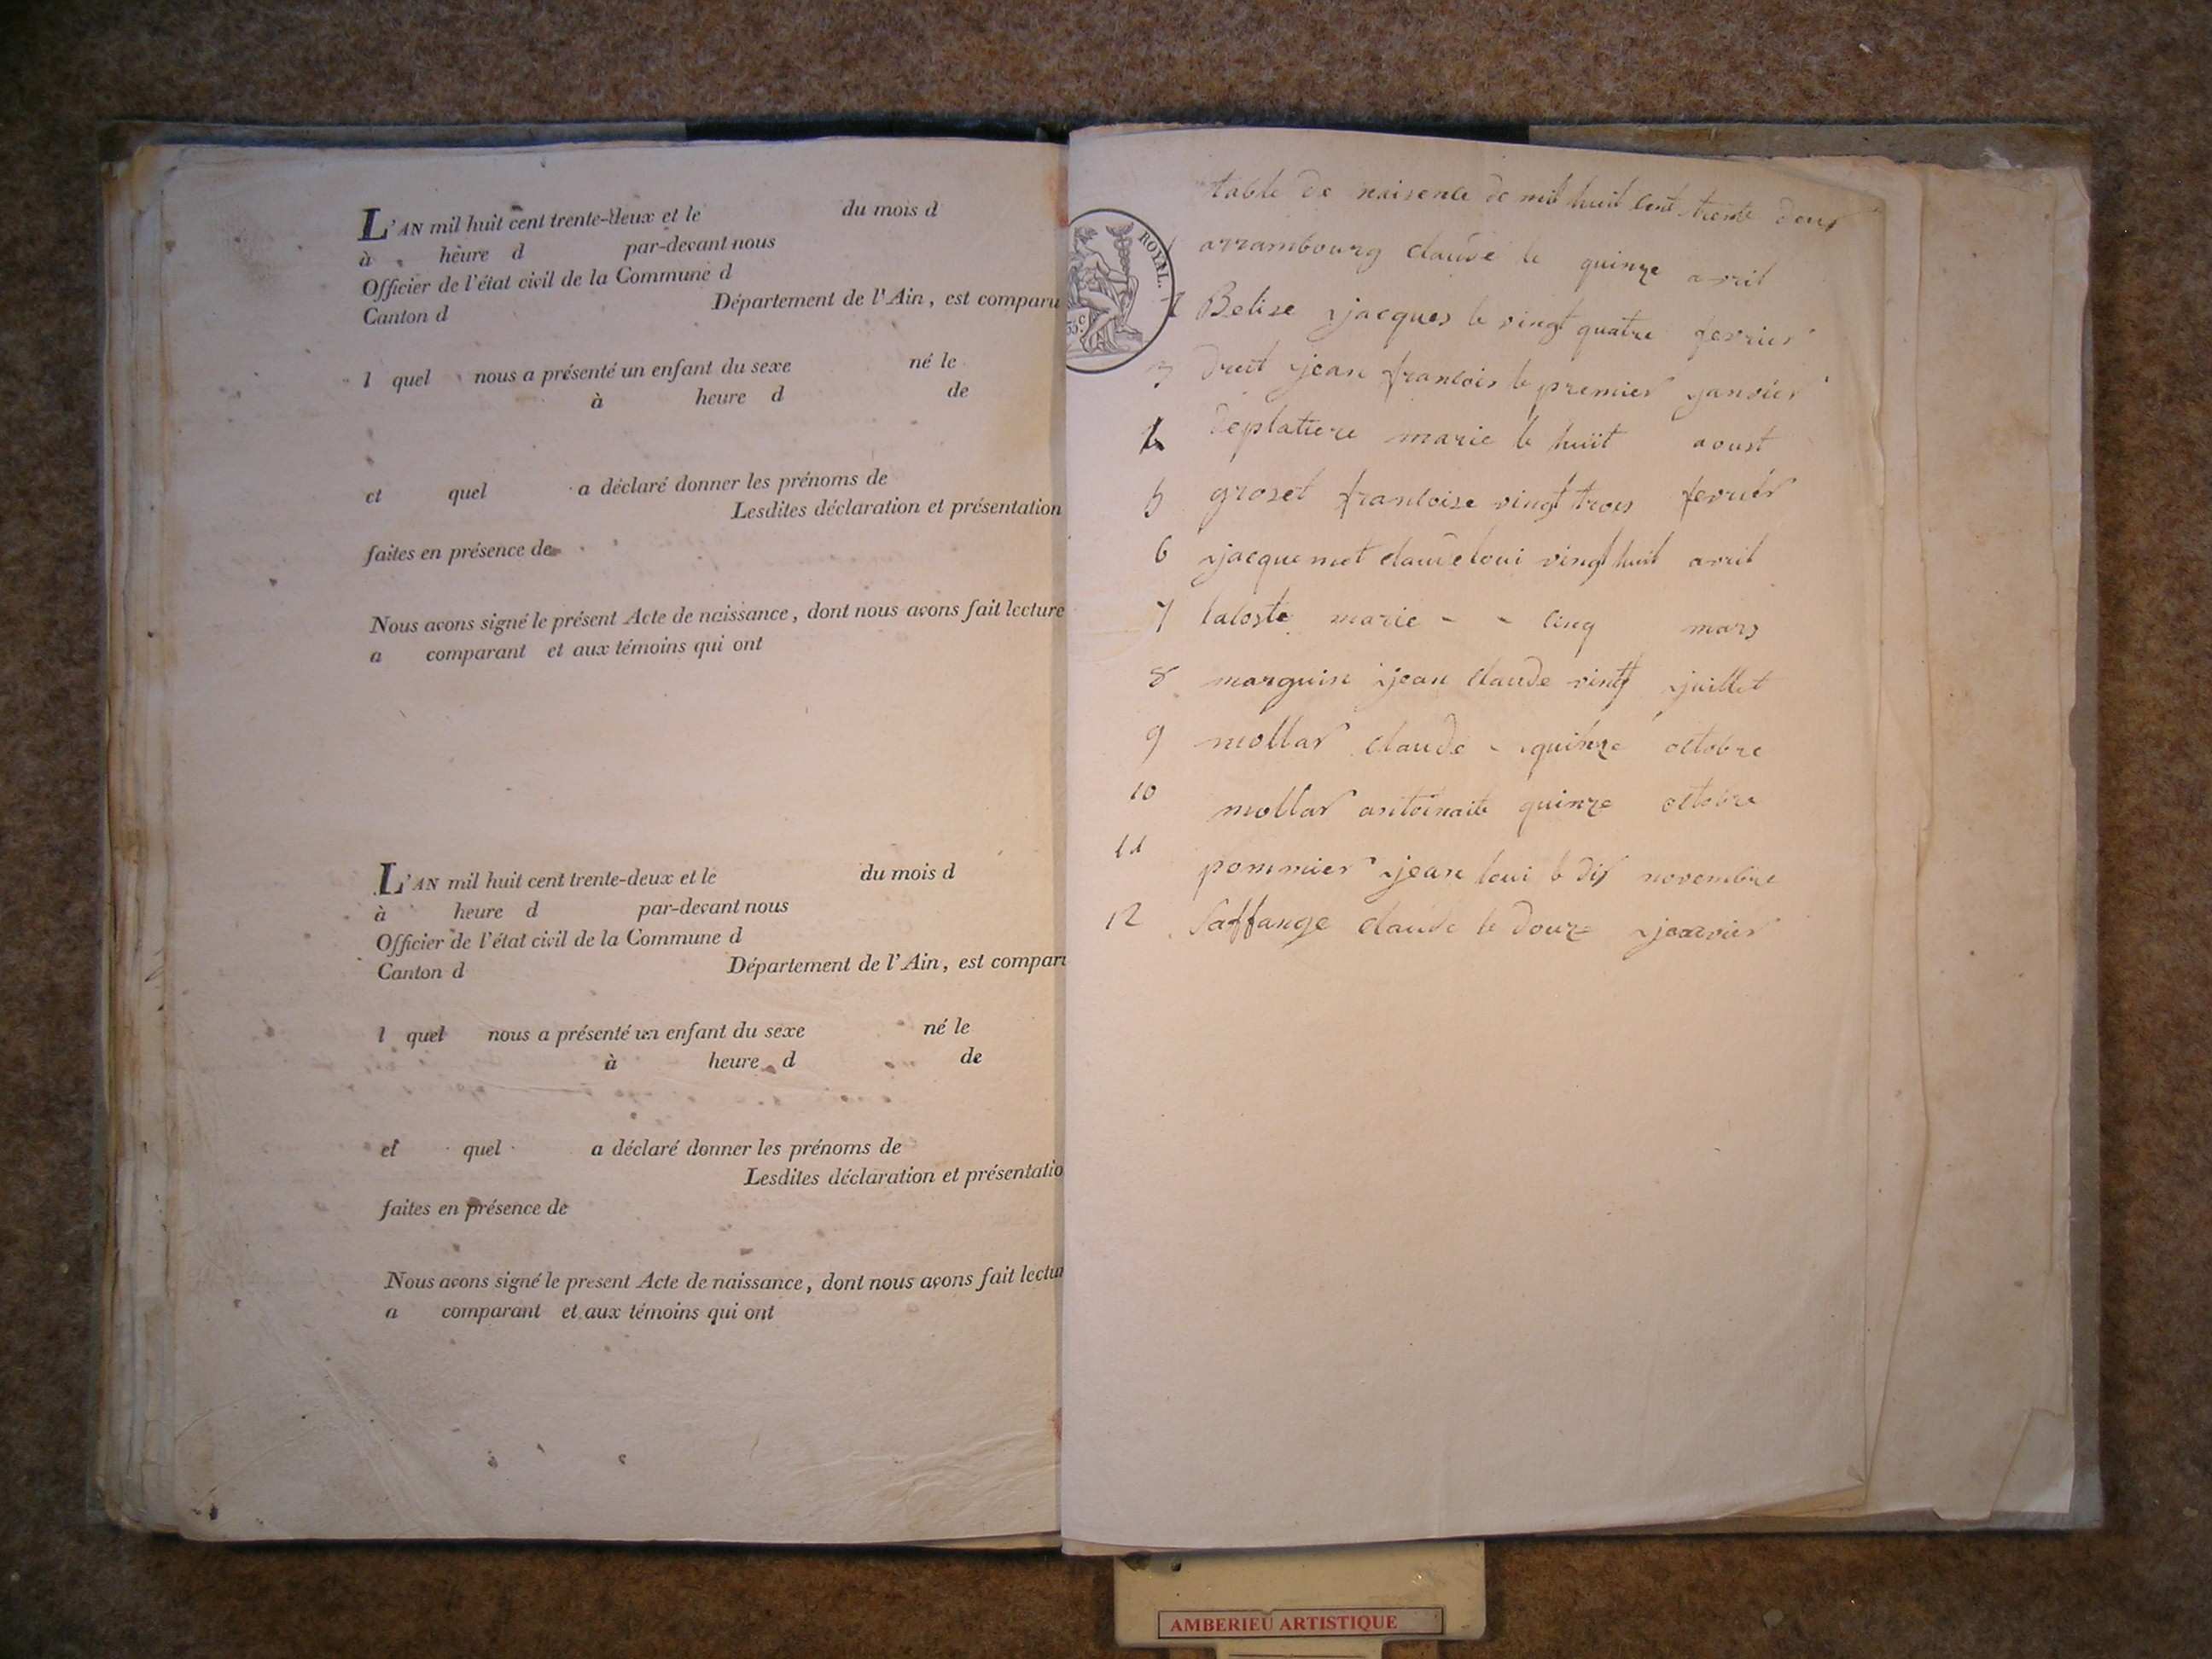 L'AN mil huit cent trente-deux et le du mois d
à heure d par-devant nous
Officier de l'état civil de la Commune d
Canton d Département de l'Ain, est comparu
l quel nous a présenté un enfant du sexe né le
à heure d de
et quel a déclaré donner les prénoms de
Lesdites déclaration et présentation
faites en présence de
Nous avons signé le présent Acte de naissance, dont nous avons fait lecture
a comparant et aux témoins qui ont
L'AN mil huit cent trente-deux et le du mois d
à heure d par-devant nous
Officier de l'état civil de la Commune d
Canton d Département de l'Ain, est compar
l quel nous a présenté un enfant du sexe né le
à heure d de
et quel a déclaré donner les prénoms de
Lesdites déclaration et présentatio
faites en présence de
Nous avons signé le present Acte de naissance, dont nous avons fait lectur
a comparant et aux témoins qui ont
table de naisence de mil huit cent trente deux
ROYAL.
35.c
arrambourg claude le quinze avril
Belise jacques le vingt quatre fevrier
3 druit jean francois le premier janvier
4 deplatiere marie le huit aoust
5 groset francoise vingt trois fevrier
6 jacquemet claude loui vingt huit avril
7 lacoste marie - - cinq mars
8 marguin jean claude vingt juillet
9 mollar claude - quinze octobre
10 mollar antoinaite quinze octobre
11 pommier jean loui le dix novembre
12 Saffange claude le douze janvier
AMBERIEU ARTISTIQUE